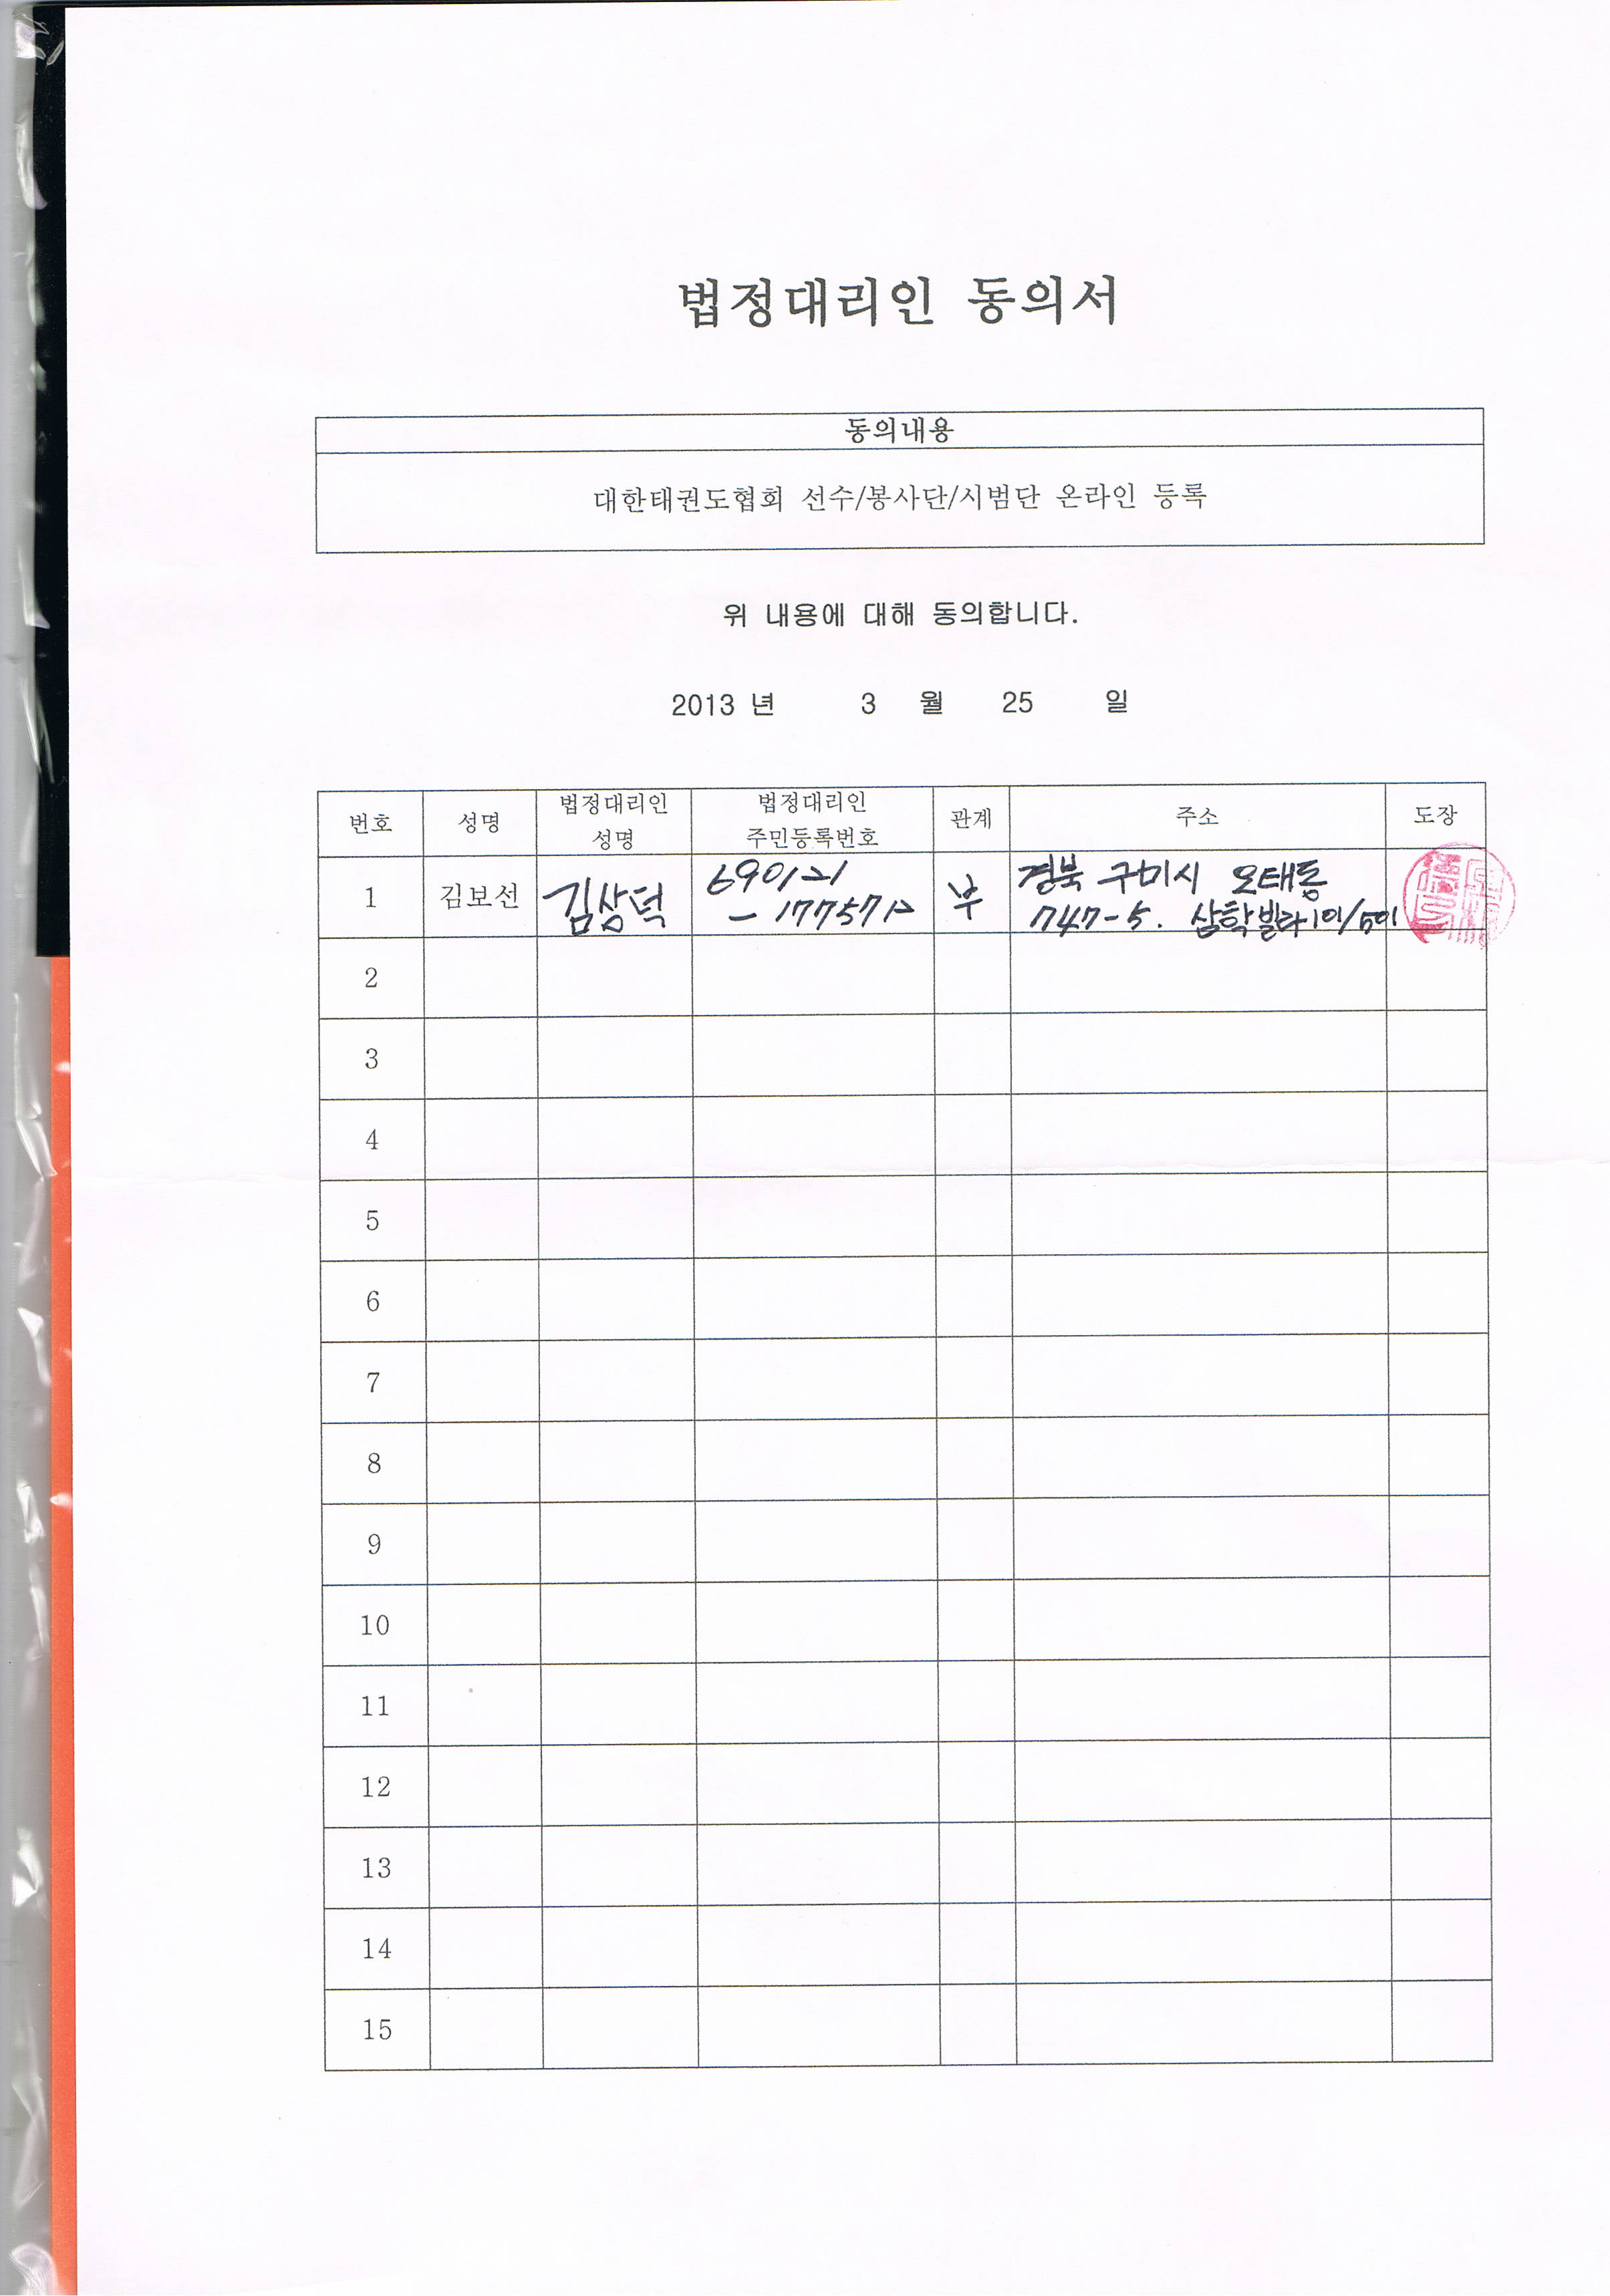 법정대리인 동의서
동의내용
대한태권도협회 선수/봉사단/시범단 온라인 등록
위 내용에 대해 동의합니다.
2013 년 3 월 25 일
번호 성명 법정대리인 성명 법정대리인 주민등록번호 관계 주소 도장
1 김보선 김상덕 690121 부 경북 구미시 오태동
747-5. 삼학빌라 101/501
2
3
4
5
6
7
8
9
10
11
12
13
14
15